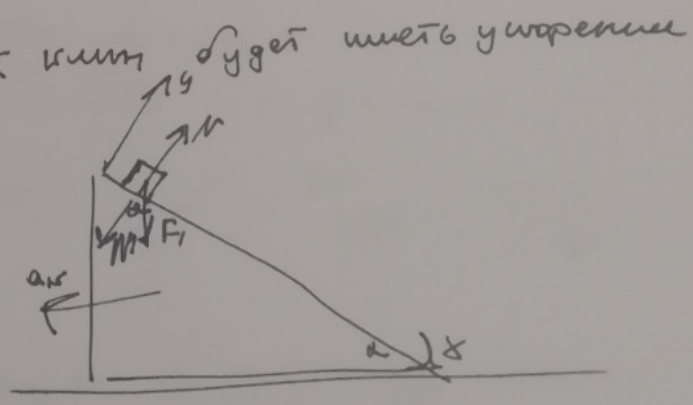 клин будет иметь ускорение
y
N
α
F₁
aк
α
γ